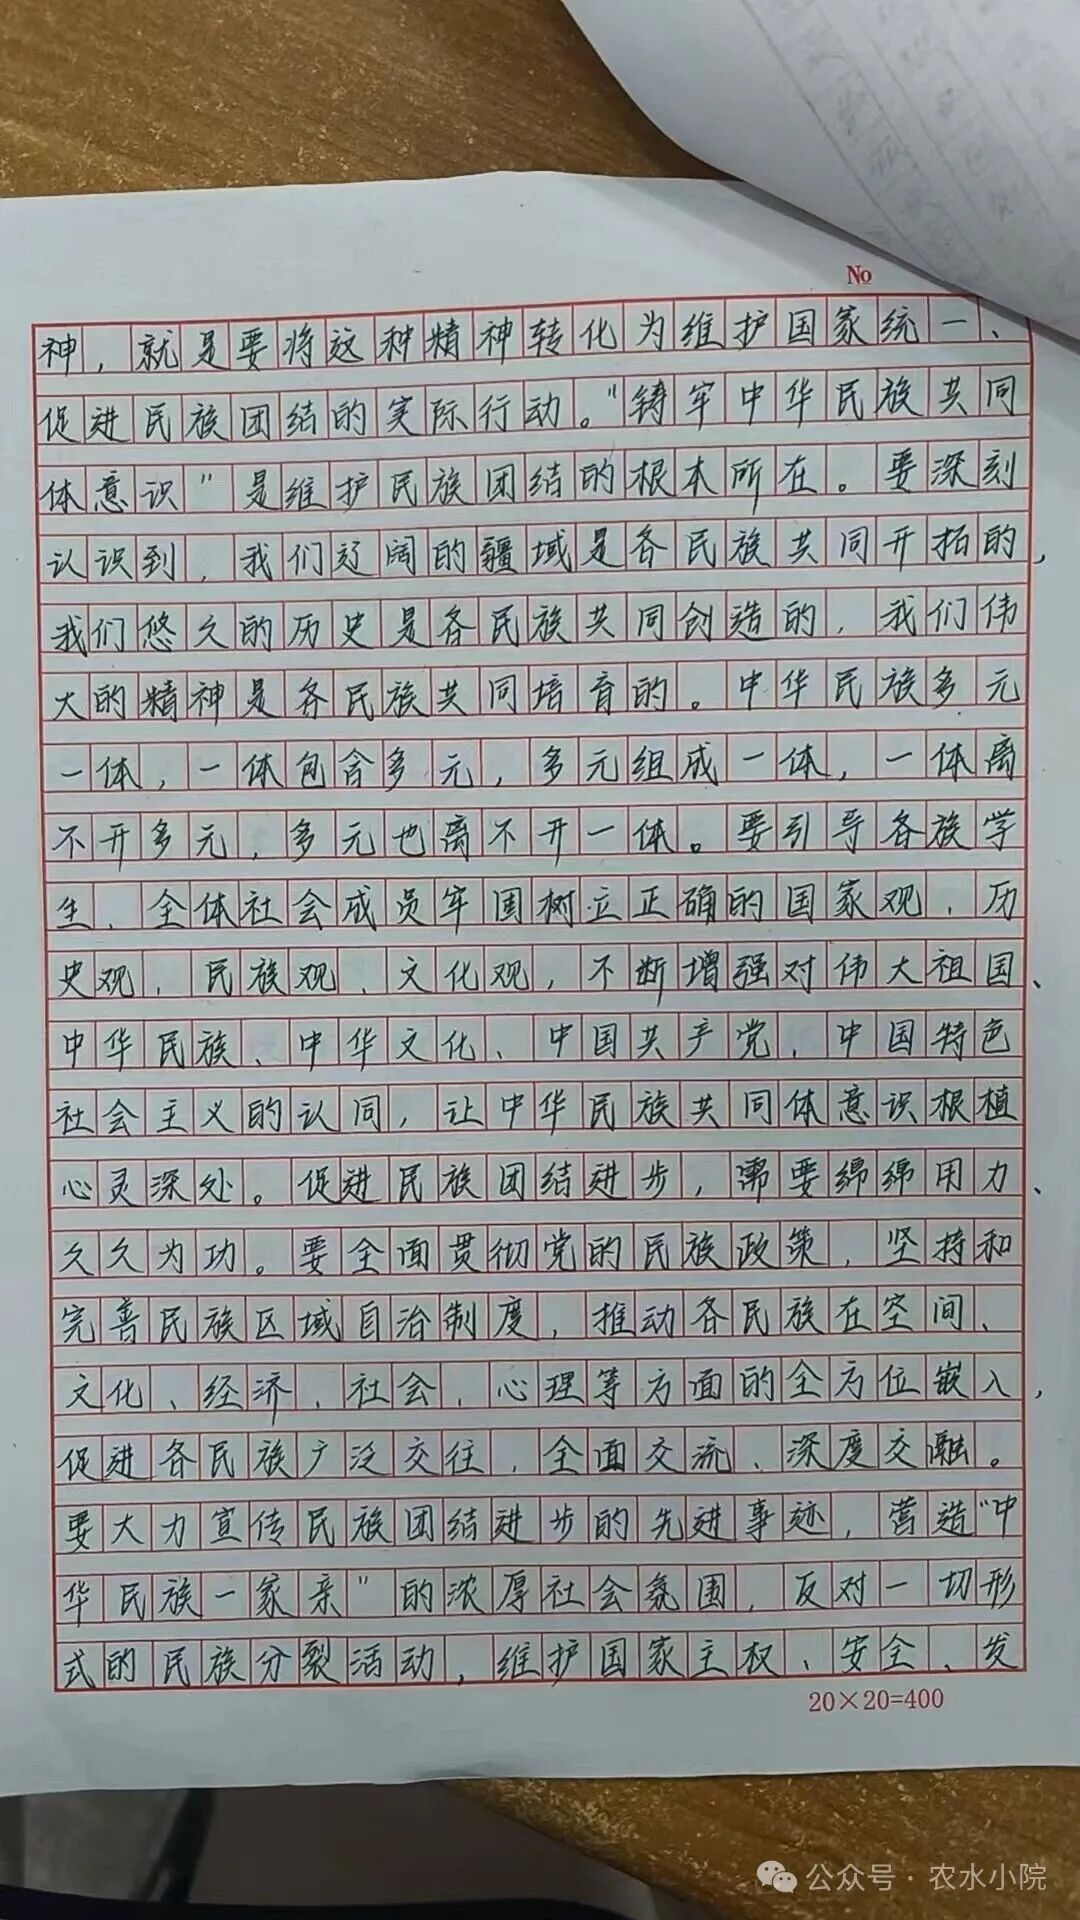 No
神，就是要将这种精神转化为维护国家统一、
促进民族团结的实际行动。“铸牢中华民族共同
体意识”是维护民族团结的根本所在。要深刻
认识到，我们辽阔的疆域是各民族共同开拓的，
我们悠久的历史是各民族共同创造的，我们伟
大的精神是各民族共同培育的。中华民族多元
一体，一体包含多元，多元组成一体，一体离
不开多元，多元也离不开一体。要引导各族学
生、全体社会成员牢固树立正确的国家观、历
史观、民族观、文化观，不断增强对伟大祖国、
中华民族、中华文化、中国共产党、中国特色
社会主义的认同，让中华民族共同体意识根植
心灵深处。促进民族团结进步，需要绵绵用力、
久久为功。要全面贯彻党的民族政策，坚持和
完善民族区域自治制度，推动各民族在空间、
文化、经济、社会、心理等方面的全方位嵌入，
促进各民族广泛交往、全面交流、深度交融。
要大力宣传民族团结进步的先进事迹，营造“中
华民族一家亲”的浓厚社会氛围，反对一切形
式的民族分裂活动，维护国家主权、安全、发
20×20=400
公众号·农水小院